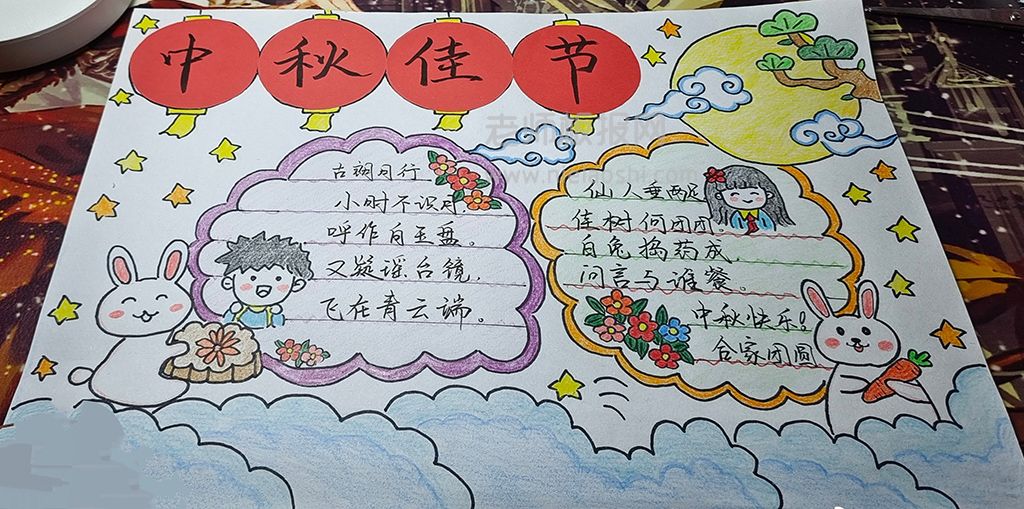 中秋佳节
古朗月行
小时不识月,
呼作白玉盘。
又疑谣台镜,
飞在青云端。
仙人垂两足
佳树何团团。
白兔捣药成,
问言与谁餐。
中秋快乐!
合家团圆
老师板报网